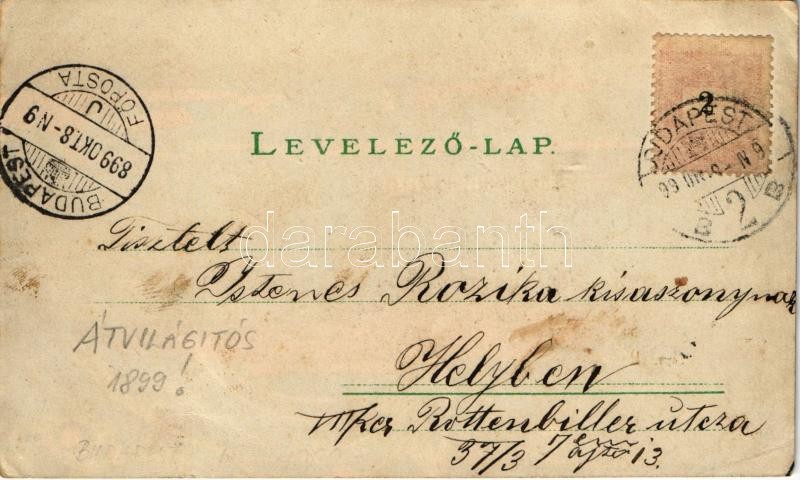 BUDAPEST
899 OKT.8-N9
J
FŐPOSTA
2
BUDAPEST
99 OKT.8-N9
B 2 B
LEVELEZŐ-LAP.
darabanth
Tisztelt
Istenes Rozika kisaszonynak
ÁTVILÁGITÓS
1899!
Helyben
VII ker Rottenbiller utcza
37/3 7 ajtó 13.